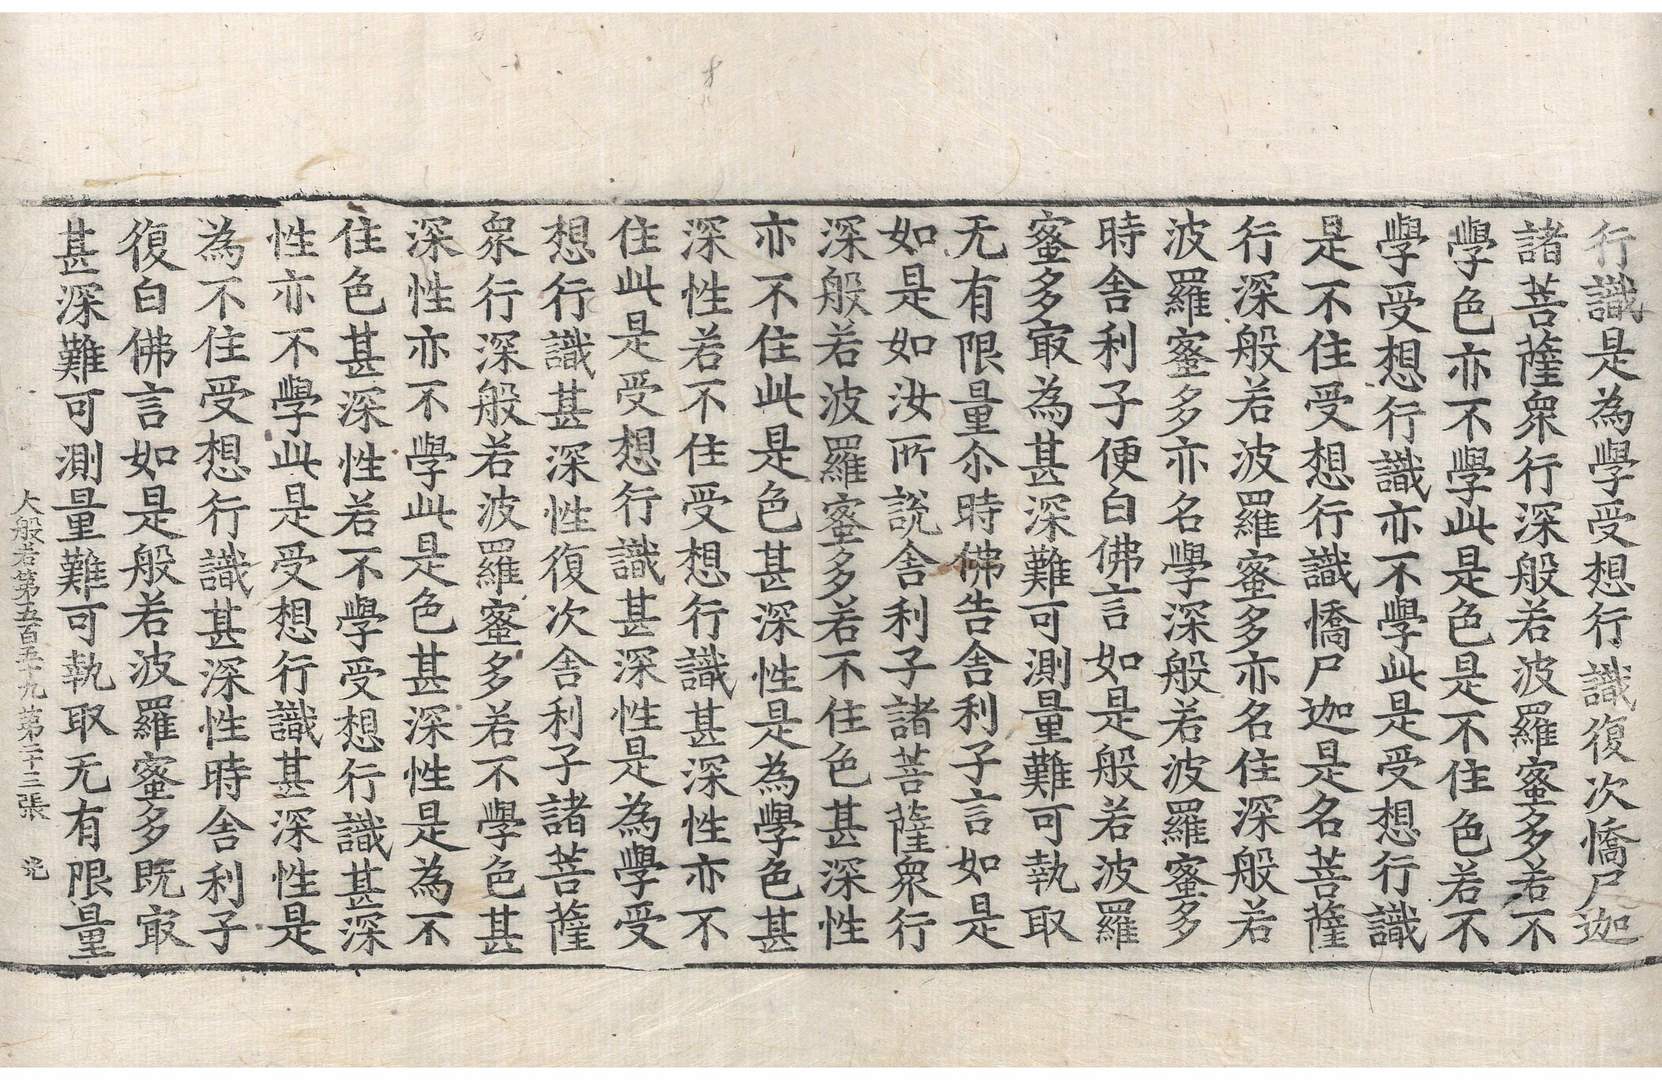 行識是為學受想行識復次憍尸迦
諸菩薩衆行深般若波羅蜜多若不
學色亦不學此是色是不住色若不
學受想行識亦不學此是受想行識
是不住受想行識憍尸迦是名菩薩
行深般若波羅蜜多亦名住深般若
波羅蜜多亦名學深般若波羅蜜多
時舍利子便白佛言如是般若波羅
蜜多㝡為甚深難可測量難可執取
无有限量尒時佛告舍利子言如是
如是如汝所說舍利子諸菩薩衆行
深般若波羅蜜多若不住色甚深性
亦不住此是色甚深性是為學色甚
深性若不住受想行識甚深性亦不
住此是受想行識甚深性是為學受
想行識甚深性復次舍利子諸菩薩
衆行深般若波羅蜜多若不學色甚
深性亦不學此是色甚深性是為不
住色甚深性若不學受想行識甚深
性亦不學此是受想行識甚深性是
為不住受想行識甚深性時舍利子
復白佛言如是般若波羅蜜多既㝡
甚深難可測量難可執取无有限量
大般若第五百五十九 第二十三張 光